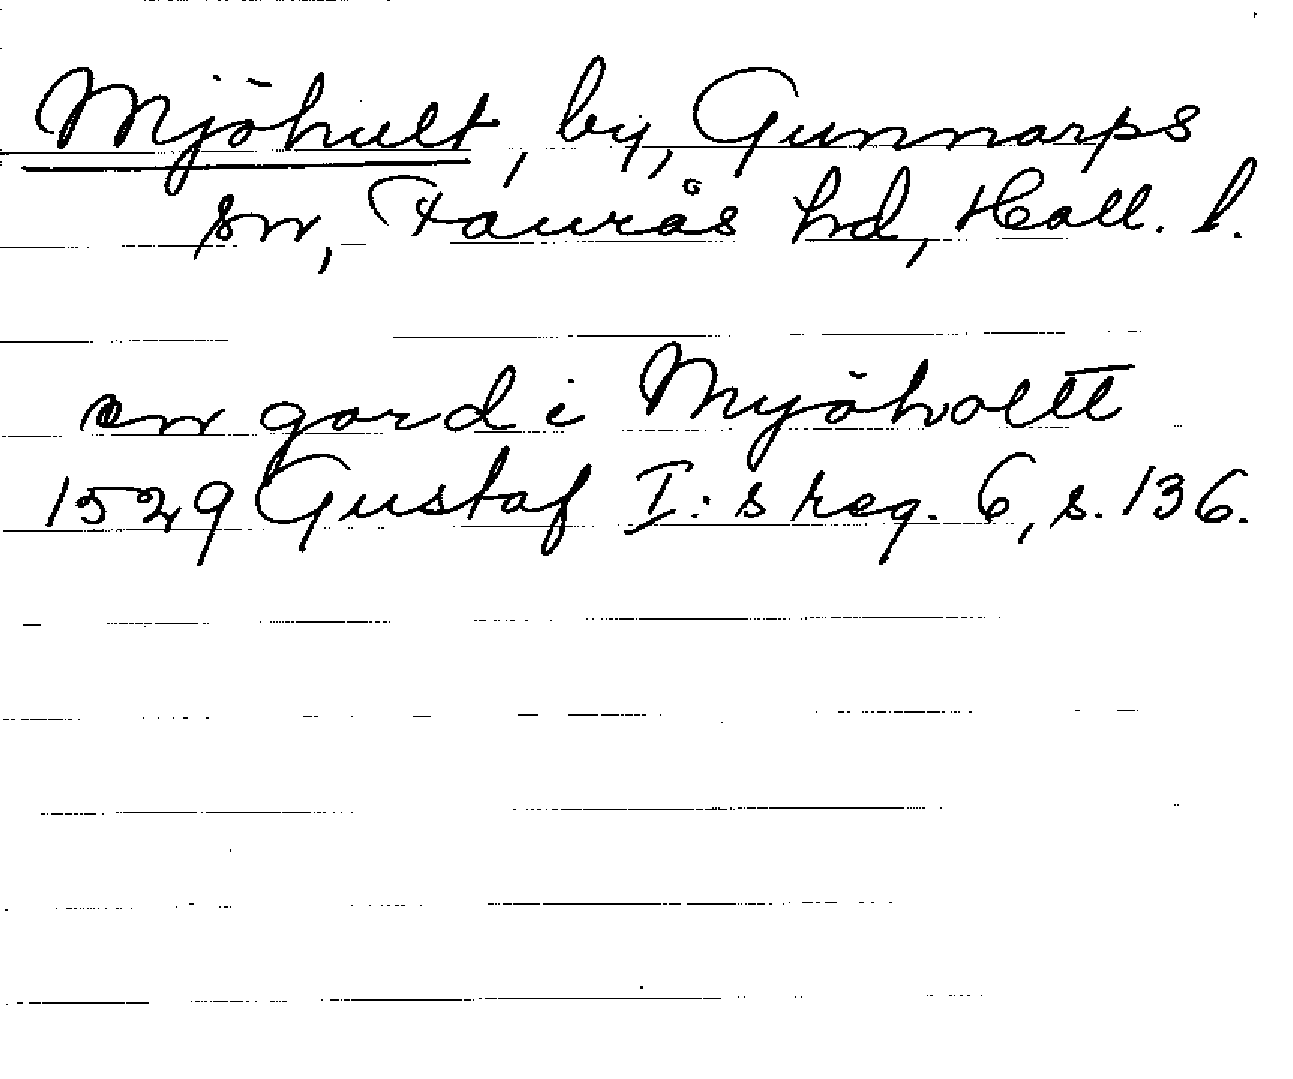 Mjöhult, by, Gunnarps
sn, Faurås hd, Hall. l.
en gard i Myöhollt
1529 Gustaf I:s reg. 6, s. 136.